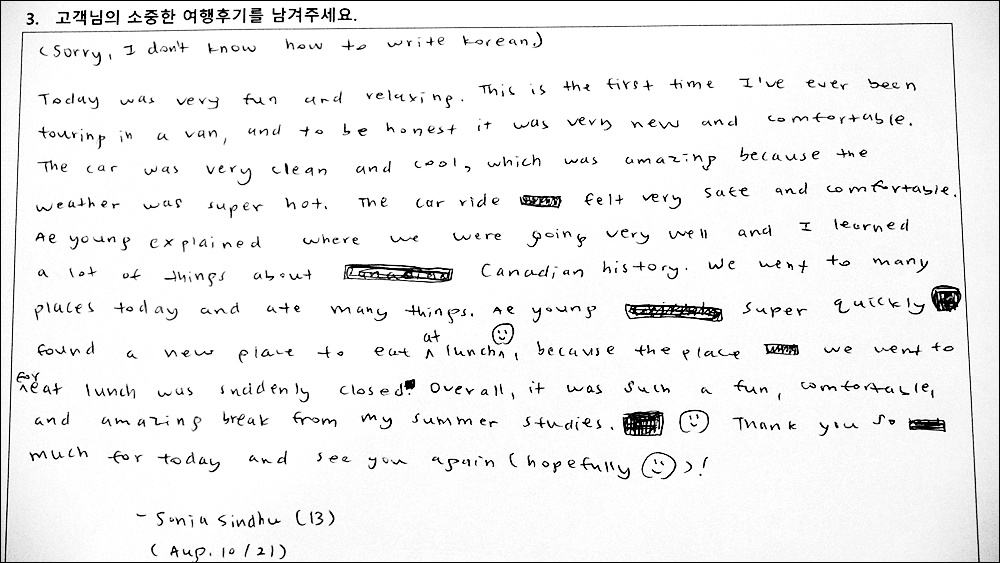 3. 고객님의 소중한 여행후기를 남겨주세요.
(Sorry, I don't know how to write Korean.)
Today was very fun and relaxing. This is the first time I've ever been
touring in a van, and to be honest it was very new and comfortable.
The car was very clean and cool, which was amazing because the
weather was super hot. The car ride felt very safe and comfortable.
Ae young explained where we were going very well and I learned
a lot of things about Canadian history. We went to many
places today and ate many things. Ae young super quickly
found a new place to eat at lunch, because the place we went to
for eat lunch was suddenly closed. Overall, it was such a fun, comfortable,
and amazing break from my summer studies. Thank you so
much for today and see you again (hopefully )!
- Sonia Sindhu (13)
(Aug. 10/21)